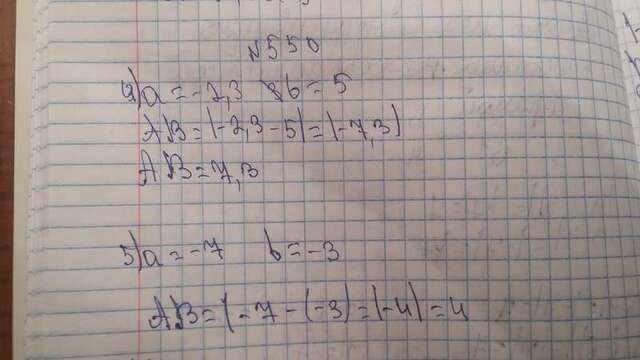 N550
а) a = -2,3 b = 5
AB = |-2,3 - 5| = |-7,3|
AB = 7,3
б) a = -7 b = -3
AB = |-7 - (-3)| = |-4| = 4